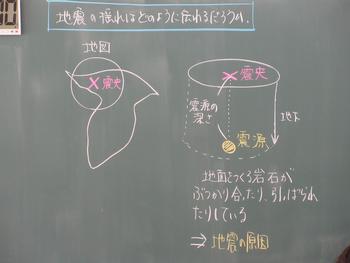 地震の揺れはどのように伝わるだろうか。
地図
震央
震央
震源の
深さ
地下
震源
地面をつくる岩石が
ぶつかり合ったり、引っぱられ
たりしている
⇒ 地震の原因